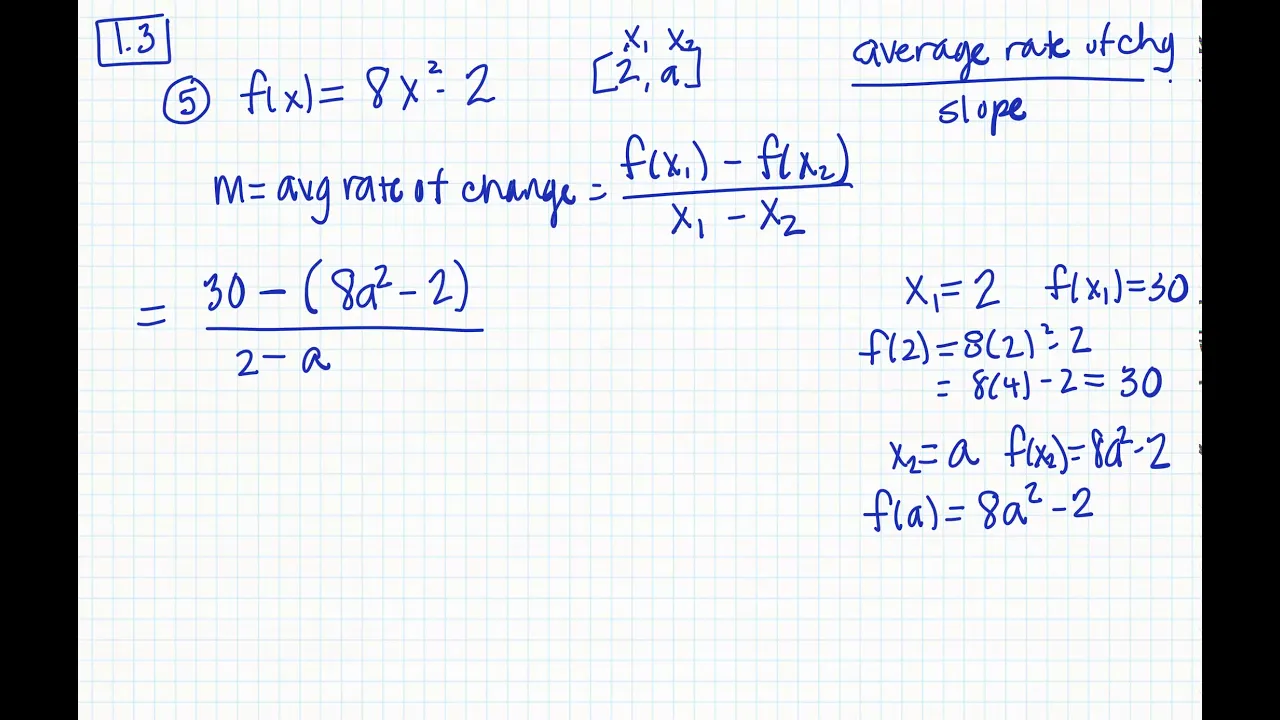 1.3
⑤ f(x) = 8x² - 2
x₁ x₂
[2, a]
average rate of chg
slope
m = avg rate of change = f(x₁) - f(x₂) / x₁ - x₂
= 30 - (8a² - 2) / 2 - a
x₁ = 2 f(x₁) = 30
f(2) = 8(2)² - 2
= 8(4) - 2 = 30
x₂ = a f(x₂) = 8a² - 2
f(a) = 8a² - 2